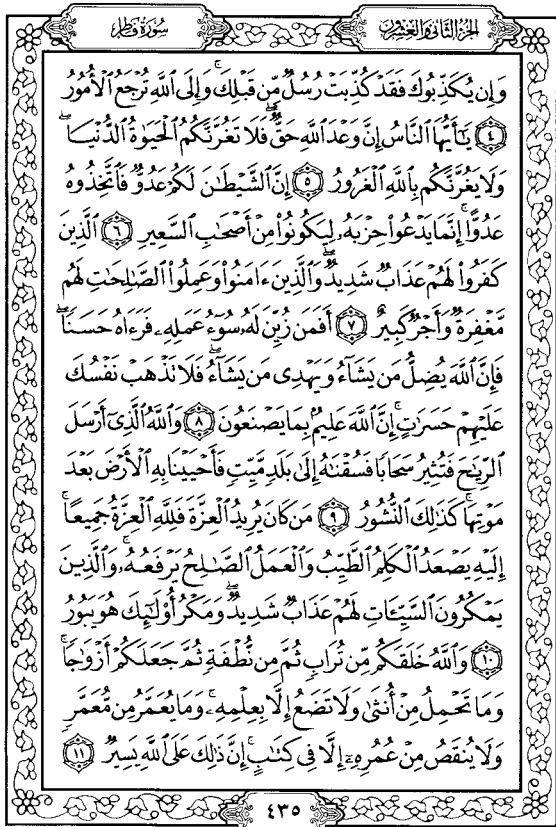 سُورَةُ فَاطِرٍ
الجُزْءُ الثَّانِي وَالعِشْرُونَ
وَإِن يُكَذِّبُوكَ فَقَدْ كُذِّبَتْ رُسُلٌ مِّن قَبْلِكَ ۚ وَإِلَى اللَّهِ تُرْجَعُ الْأُمُورُ
﴿٤﴾ يَـٰٓأَيُّهَا النَّاسُ إِنَّ وَعْدَ اللَّهِ حَقٌّ ۖ فَلَا تَغُرَّنَّكُمُ الْحَيَوٰةُ الدُّنْيَا ۖ
وَلَا يَغُرَّنَّكُم بِاللَّهِ الْغَرُورُ ﴿٥﴾ إِنَّ الشَّيْطَـٰنَ لَكُمْ عَدُوٌّ فَاتَّخِذُوهُ
عَدُوًّا ۚ إِنَّمَا يَدْعُوا۟ حِزْبَهُۥ لِيَكُونُوا۟ مِنْ أَصْحَـٰبِ السَّعِيرِ ﴿٦﴾ الَّذِينَ
كَفَرُوا۟ لَهُمْ عَذَابٌ شَدِيدٌ ۖ وَالَّذِينَ ءَامَنُوا۟ وَعَمِلُوا۟ الصَّـٰلِحَـٰتِ لَهُم
مَّغْفِرَةٌ وَأَجْرٌ كَبِيرٌ ﴿٧﴾ أَفَمَن زُيِّنَ لَهُۥ سُوٓءُ عَمَلِهِۦ فَرَءَاهُ حَسَنًا ۖ
فَإِنَّ اللَّهَ يُضِلُّ مَن يَشَآءُ وَيَهْدِى مَن يَشَآءُ ۖ فَلَا تَذْهَبْ نَفْسُكَ
عَلَيْهِمْ حَسَرَٰتٍ ۚ إِنَّ اللَّهَ عَلِيمٌۢ بِمَا يَصْنَعُونَ ﴿٨﴾ وَاللَّهُ الَّذِىٓ أَرْسَلَ
الرِّيَـٰحَ فَتُثِيرُ سَحَابًا فَسُقْنَـٰهُ إِلَىٰ بَلَدٍ مَّيِّتٍ فَأَحْيَيْنَا بِهِ الْأَرْضَ بَعْدَ
مَوْتِهَا ۚ كَذَٰلِكَ النُّشُورُ ﴿٩﴾ مَن كَانَ يُرِيدُ الْعِزَّةَ فَلِلَّهِ الْعِزَّةُ جَمِيعًا ۚ
إِلَيْهِ يَصْعَدُ الْكَلِمُ الطَّيِّبُ وَالْعَمَلُ الصَّـٰلِحُ يَرْفَعُهُۥ ۚ وَالَّذِينَ
يَمْكُرُونَ السَّيِّـَٔاتِ لَهُمْ عَذَابٌ شَدِيدٌ ۖ وَمَكْرُ أُو۟لَـٰٓئِكَ هُوَ يَبُورُ
﴿١٠﴾ وَاللَّهُ خَلَقَكُم مِّن تُرَابٍ ثُمَّ مِن نُّطْفَةٍ ثُمَّ جَعَلَكُمْ أَزْوَٰجًا ۚ
وَمَا تَحْمِلُ مِنْ أُنثَىٰ وَلَا تَضَعُ إِلَّا بِعِلْمِهِۦ ۚ وَمَا يُعَمَّرُ مِن مُّعَمَّرٍ
وَلَا يُنقَصُ مِنْ عُمُرِهِۦٓ إِلَّا فِى كِتَـٰبٍ ۚ إِنَّ ذَٰلِكَ عَلَى اللَّهِ يَسِيرٌ ﴿١١﴾
٤٣٥